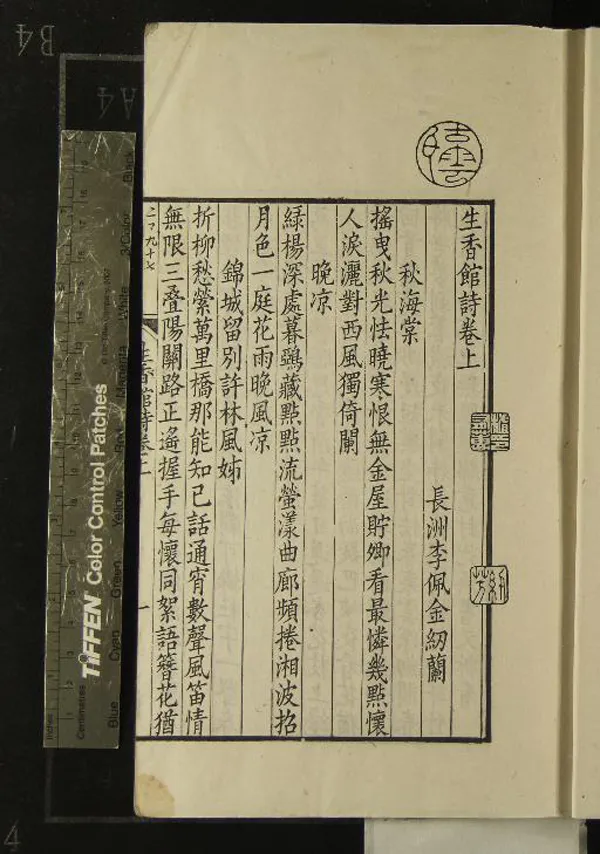 生香館詩卷上
長洲李佩金紉蘭
秋海棠
搖曳秋光怯曉寒恨無金屋貯卿看最憐幾點懷
人淚灑對西風獨倚闌
晚凉
緑楊深處暮鴉藏點點流螢漾曲廊頻捲湘波招
月色一庭花雨晚風凉
錦城留別許林風姊
折柳愁縈萬里橋那能知己話通宵數聲風笛情
無限三疊陽關路正遙握手每懷同絮語簪花猶
生香館詩卷上
一
TIFFEN Color Control Patches
Inches
Centimetres
Blue
Cyan
Green
Yellow
Red
Magenta
White
3/Color
Black
B4
A4
4